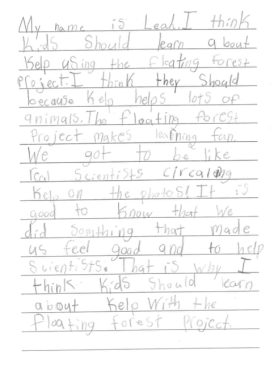 My name is Leah. I think
Kids Should learn about
Kelp using the floating forest
Project. I think they Should
because Kelp helps lots of
animals. The floating forest
Project makes learning fun.
We got to be like
real Scientists circaling
Kelp on the photos! It is
good to know that we
did somthing that made
us feel good and to help
Scientists. That is why I
think Kids Should learn
about Kelp With the
floating forest Project.